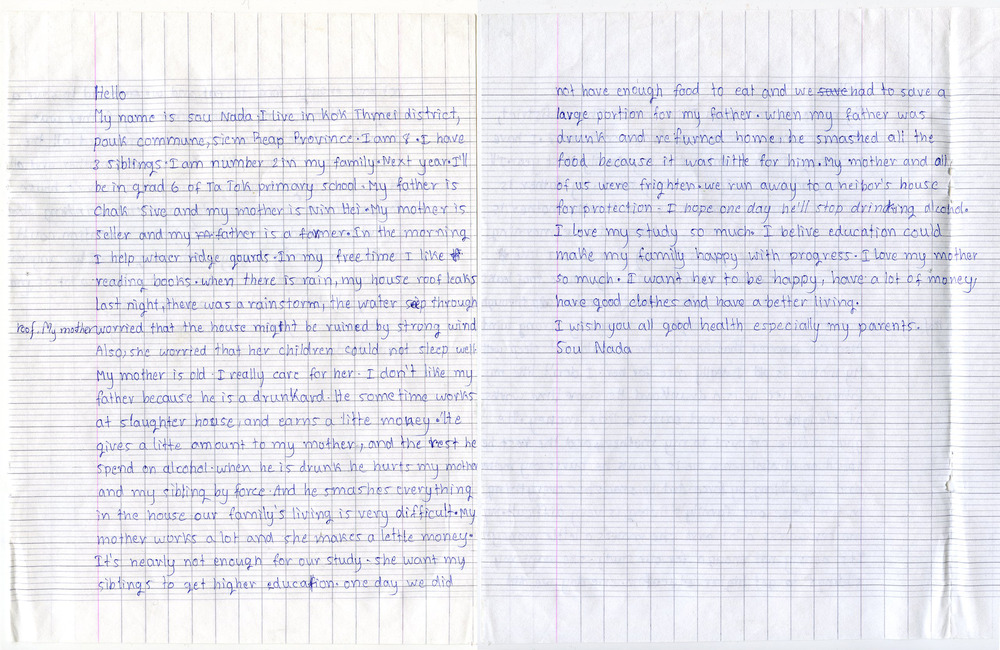 Hello
My name is sou Nada. I live in Kok Thmei district,
pouk commune, siem Reap Province. I am 8. I have
3 siblings. I am number 2 in my family. Next year. I'll
be in grad 6 of Ta Tok primary school. My father is
Chak Sive and my mother is Nin Hei. My mother is
seller and my father is a farmer. In the morning
I help wtaer ridge gourds. In my free time I like
reading books. when there is rain, my house roof leaks
last night, there was a rainstorm, the water seep through
roof. My mother worried that the house might be ruined by strong wind
Also, she worried that her children could not sleep well.
My mother is old. I really care for her. I don't like my
father because he is a drunkard. He some time works
at slaughter house, and earns a litte money. He
gives a litte amount to my mother, and the rest he
spend on alcohol. when he is drunk he hurts my mother
and my sibling by force. And he smashes everything
in the house our family's living is very difficult. My
mother works a lot and she makes a lettle money.
It's nearly not enough for our study. she want my
siblings to get higher education. one day we did
not have enough food to eat and we save had to save a
large portion for my father. when my father was
drunk and returned home, he smashed all the
food because it was little for him. My mother and all
of us were frighten. we run away to a neibor's house
for protection. I hope one day he'll stop drinking alcohol.
I love my study so much. I belive education could
make my family happy with progress. I love my mother
so much. I want her to be happy, have a lot of money,
have good clothes and have a better living.
I wish you all good health especially my parents.
Sou Nada